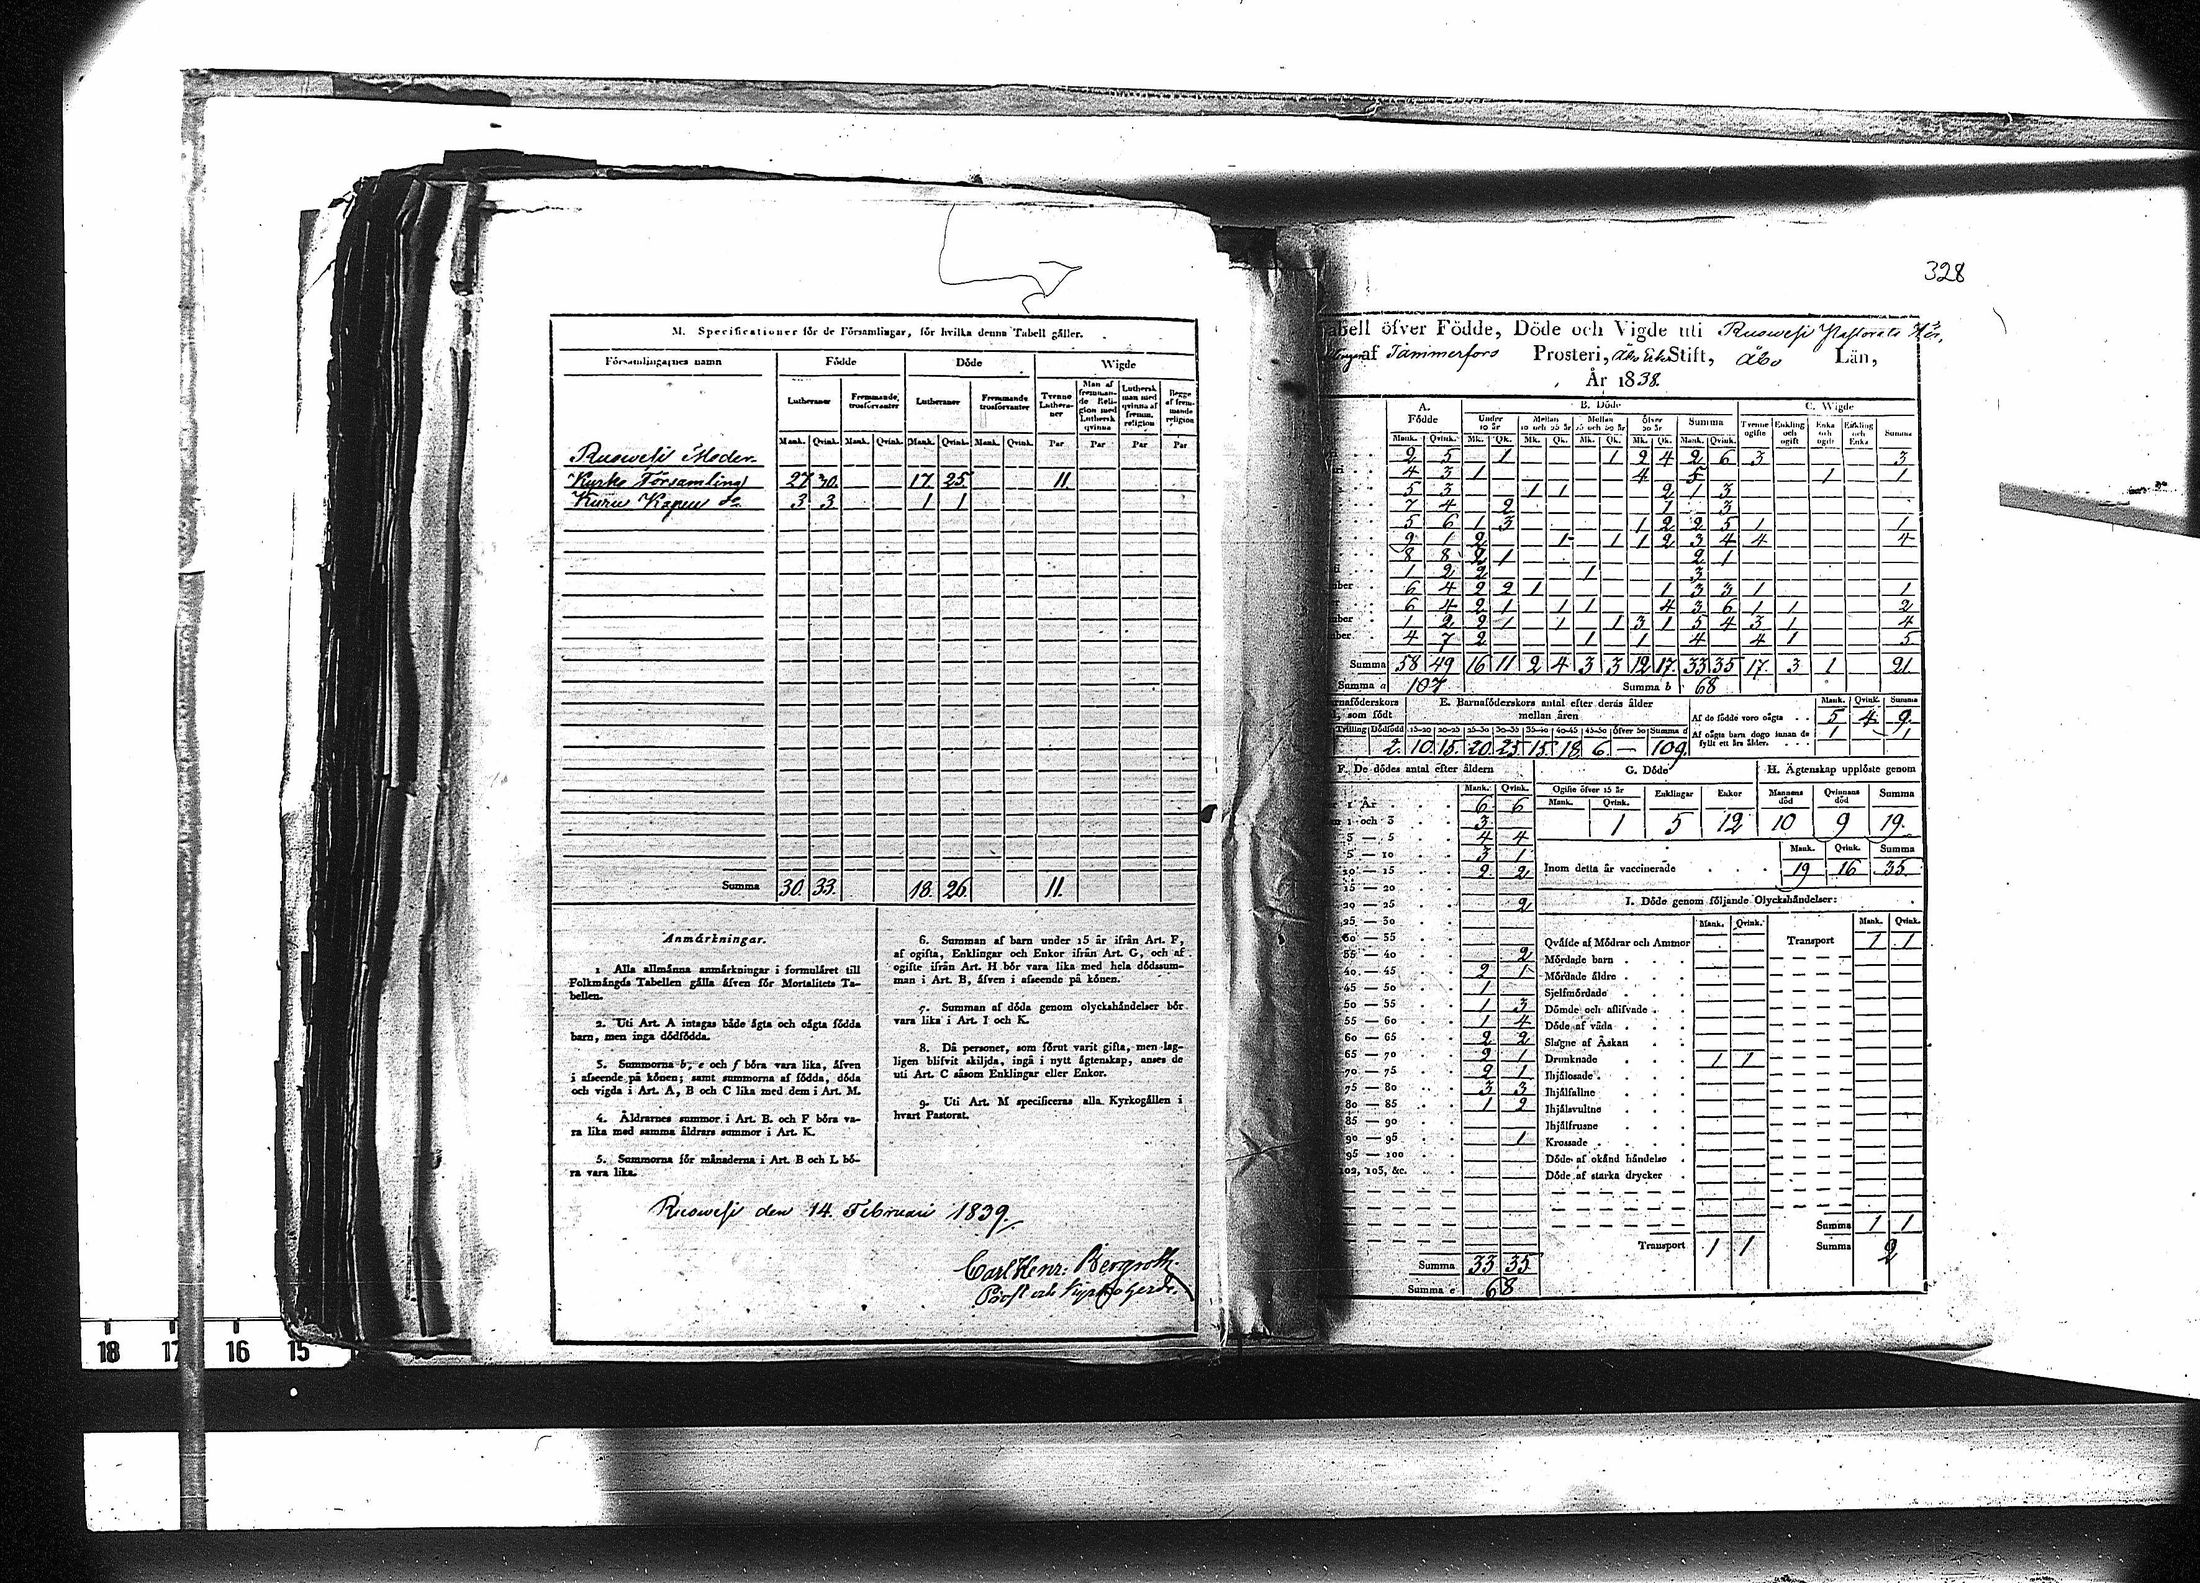 M. Specificationer för de Församlingar, för hvilka denna Tabell gäller.
Församlingarnes namn Födde Döde Wigde
Lutheraner Fremmande trosförvanter Lutheraner Fremmande trosförvanter Tvenne Lutheraner Man af fremmande Religion med Luthersk qvinna Luthersk man med qvinna af fremm. religion Begge af fremmande religion
Mank. Qvink. Mank. Qvink. Mank. Qvink. Mank. Qvink. Par Par Par Par
Ruowesi Moder-
Kyrko Församling 27 30. 17. 25. 11.
Kuru Kapell do 3 3 1 1
Summa 30. 33. 18. 26. 11.
Anmärkningar.
1. Alla allmänna anmärkningar i formuläret till
Folkmängds Tabellen gälla äfven för Mortalitets Ta-
bellen.
2. Uti Art. A intagas både ägta och oägta födda
barn, men inga dödfödda.
3. Summorna b, e och f böra vara lika, äfven
i afseende på könen; samt summorna af födda, döda
och vigda i Art. A, B och C lika med dem i Art. M.
4. Åldrarnes summor i Art. B. och F böra va-
ra lika med samma åldrars summor i Art. K.
5. Summorna för månaderna i Art. B och L bö-
ra vara lika.
6. Summan af barn under 15 år ifrån Art. F,
af ogifta, Enklingar och Enkor ifrån Art. G, och af
ogifte ifrån Art. H bör vara lika med hela dödssum-
man i Art. B, äfven i afseende på könen.
7. Summan af döda genom olyckshändelser bör
vara lika i Art. I och K.
8. Då personer, som förut varit gifta, men lag-
ligen blifvit skiljda, ingå i nytt ägtenskap, anses de
uti Art. C såsom Enklingar eller Enkor.
9. Uti Art. M specificeras alla Kyrkogällen i
hvart Pastorat.
Ruowesi den 14. Februari 1839.
Carl Henr: Bergroth.
Prost och Kyrkoherde.
328
abell öfver Födde, Döde och Vigde uti Ruowesi Pastorats
af Tammerfors Prosteri, Åbo Stift, Åbo Län,
År 1838.
A. Födde B. Döde C. Wigde
Under 10 år Mellan 10 och 25 år Mellan 25 och 50 år Öfver 50 år Summa Tvenne ogifte Enkling och ogift Enka och ogift Enkling och Enka Summa
Mank. Qvink. Mk. Qk. Mk. Qk. Mk. Qk. Mk. Qk. Mank. Qvink.
2 5 1 1 2 4 2 6 3 3
4 3 1 4 5 1 1
5 3 1 1 2 1 3
7 4 2 1 3
5 6 1 3 1 2 2 5 1 1
9 1 2 1 1 1 2 3 4 4 4
8 8 2 1 2 1
1 2 2 1 3
mber 6 4 2 2 1 1 3 3 1 1
6 4 2 1 1 1 4 3 6 1 1 2
mber 1 2 2 1 1 1 3 1 5 4 3 1 4
mber 4 7 2 1 1 4 4 1 5
Summa 58 49 16 11 2 4 3 3 12 17 33 35 17. 3 1 21
Summa a 107 Summa b 68
rnaföderskors
, som födt
Trilling Dödfödd
2.
E. Barnaföderskors antal efter deras ålder
mellan åren
15-20 20-25 25-30 30-35 35-40 40-45 45-50 öfver 50 Summa d
10. 15. 20. 25. 15. 18. 6. — 109.
Mank. Qvink. Summa
Af de födde voro oägta 5 4 9.
Af oägta barn dogo innan de
fyllt ett års ålder. 1 1
F. De dödes antal efter åldern
Mank. Qvink.
1 År 6 6
1 och 3 3
3 — 5 4 4
5 — 10 3 1
10 — 15 2 2
15 — 20
20 — 25 2
25 — 30
30 — 35
35 — 40 2
40 — 45 2 1
45 — 50 1
50 — 55 1 3
55 — 60 1 4
60 — 65 2 2
65 — 70 2 1
70 — 75 2 1
75 — 80 3 3
80 — 85 1 2
85 — 90
90 — 95 1
95 — 100
102, 103, &c.
Summa 33 35
Summa e 68
G. Döde
Ogifte öfver 15 år Enklingar Enkor
Mank. Qvink.
1 5 12
H. Ägtenskap upplöste genom
Mannens död Qvinnans död Summa
10 9 19.
Mank. Qvink. Summa
Inom detta år vaccinerade 19 16 35
I. Döde genom följande Olyckshändelser:
Mank. Qvink. Mank. Qvink.
Qväfde af Mödrar och Ammor Transport 1 1
Mördade barn
Mördade äldre
Sjelfmördade
Dömde och aflifvade
Döde af våda
Slagne af Åskan
Drunknade 1 1
Ihjälosade
Ihjälfallne
Ihjälsvultne
Ihjälfrusne
Krossade
Döde af okänd händelse
Döde af starka drycker
Summa 1 1
Transport 1 1 Summa 2
18 17 16 15